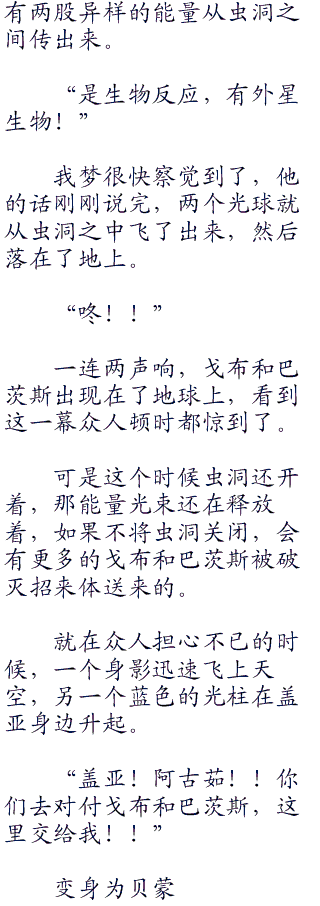 有两股异样的能量从虫洞之
间传出来。
“是生物反应，有外星
生物！”
我梦很快察觉到了，他
的话刚刚说完，两个光球就
从虫洞之中飞了出来，然后
落在了地上。
“咚！！”
一连两声响，戈布和巴
茨斯出现在了地球上，看到
这一幕众人顿时都惊到了。
可是这个时候虫洞还开
着，那能量光束还在释放
着，如果不将虫洞关闭，会
有更多的戈布和巴茨斯被破
灭招来体送来的。
就在众人担心不已的时
候，一个身影迅速飞上天
空，另一个蓝色的光柱在盖
亚身边升起。
“盖亚！阿古茹！！你
们去对付戈布和巴茨斯，这
里交给我！！”
变身为贝蒙